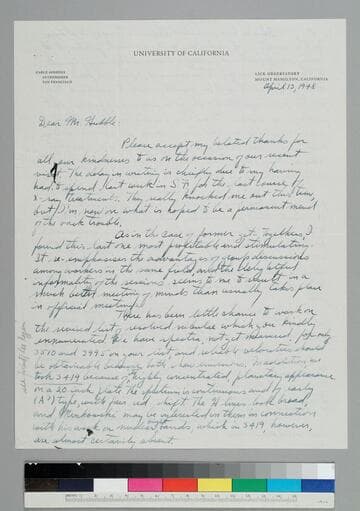 UNIVERSITY OF CALIFORNIA
CABLE ADDRESS
ASTRONOMER
SAN FRANCISCO
LICK OBSERVATORY
MOUNT HAMILTON, CALIFORNIA
April 13, 1948
Dear Mr. Hubble:
Please accept my belated thanks for
all your kindnesses to us on the occasion of our recent
visit. The delay in writing is chiefly due to my having
had to spend last week in S F for the last course of
x-ray treatments. They really knocked me out this time,
but I'm now on what is hoped to be a permanent mend
of the back trouble.
As in the case of former get-togethers, I
found this last one most profitable and stimulating.
It re-emphasizes the advantages of group discussions
among workers in the same field, and the very
informality of the sessions seems to me to result in a
much better meeting of minds than usually takes place
in official meetings.
There has been little chance to work on
the revised list of resolved nebulae which you kindly
enumerated. We have spectra, not yet measured, for only
and on your list, and reliable velocities should
be obtainable because both show emissions.
took 3419 because of highly concentrated, planetary appearance
on a 20-inch plate. The spectrum is continuous and of early
(A?) type, with fair red shift. The H lines look broad,
and Minkowski may be interested in them in connection
with his work on bands, which in 3419 however,
are almost certainly absent